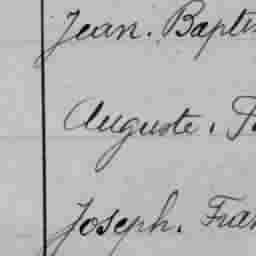 Jean. Baptis
Auguste.
Joseph. Fran